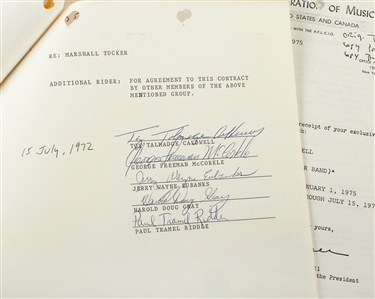 RE: MARSHALL TUCKER
ADDITIONAL RIDER: FOR AGREEMENT TO THIS CONTRACT
BY OTHER MEMBERS OF THE ABOVE
MENTIONED GROUP.
15 July, 1972
Toy Talmadge Caldwell
TOY TALMADGE CALDWELL
George Freeman McCorkle
GEORGE FREEMAN McCORKLE
Jerry Wayne Eubanks
JERRY WAYNE EUBANKS
Harold Doug Gray
HAROLD DOUG GRAY
Paul Tramel Riddle
PAUL TRAMEL RIDDLE
RATION OF MUSIC
D STATES AND CANADA
WITH THE A.F.L.-C.I.O.
1975
receipt of your exclusive
ELL
R BAND)
NUARY 1, 1975
ROUGH JULY 15, 197
yours,
the President